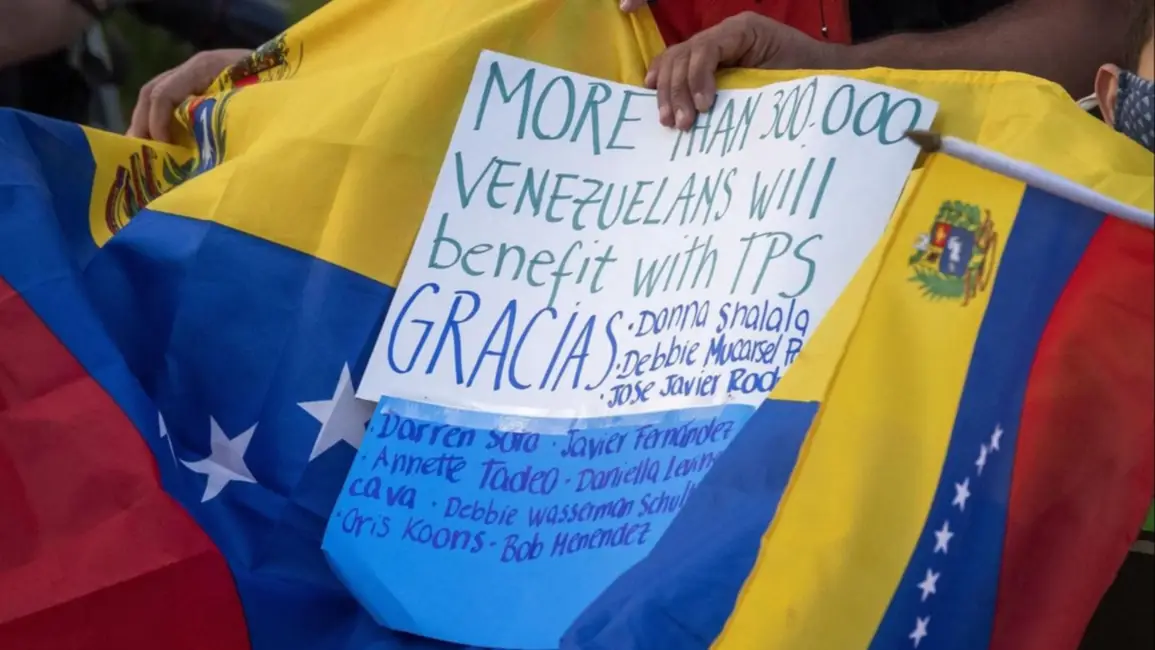 MORE THAN 300.000
VENEZUELANS WILL
benefit with TPS
GRACIAS
·Donna Shalala
·Debbie Mucarsel
·JOSE JAVIER
·Darren Soto · Javier Fernández
·Annette Tadeo · Daniella Levin
cava · Debbie Wasserman Schul
·Cris Koons · Bob Menendez